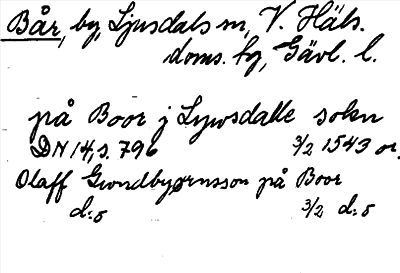 Bår, by, Ljusdals sn, V. Häls.
doms. hg, Gävl. l.
på Boor j Lywsdalle sokn
DN 14, s. 796 3/2 1543 or.
Olaff Gwndbyørnsson på Boor
d:o 3/2 d:o